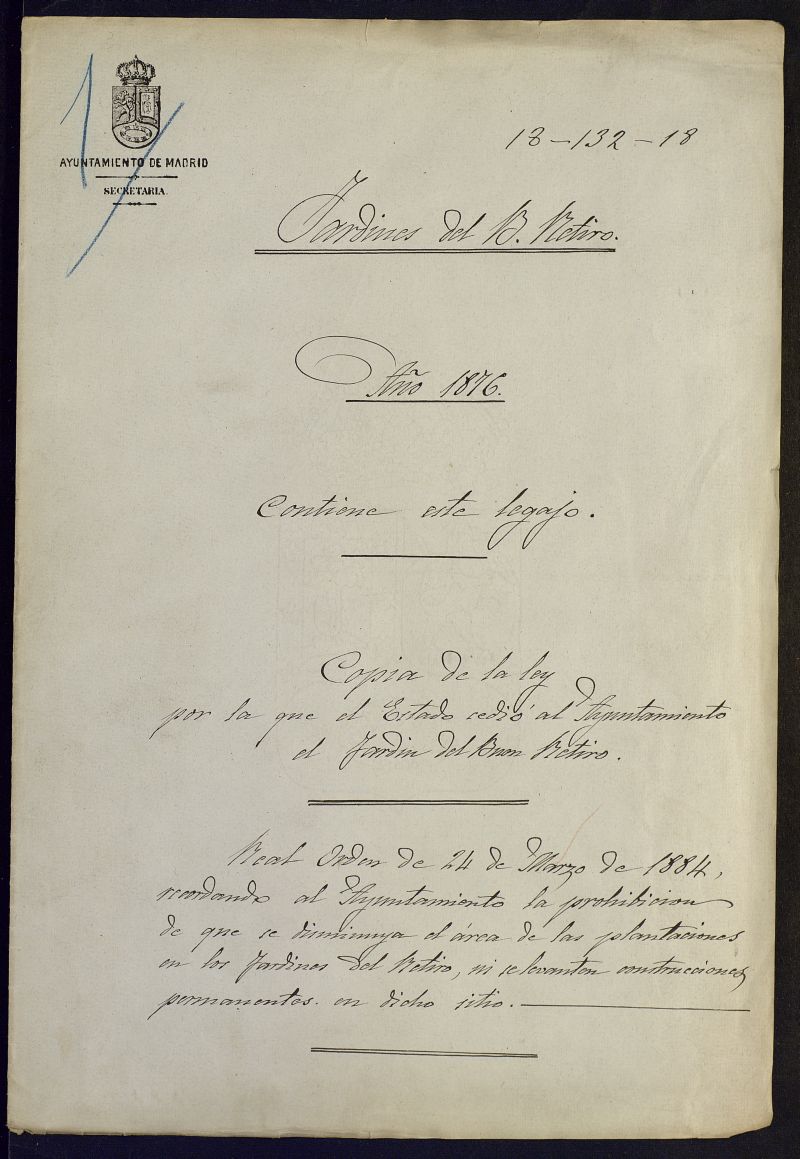 AYUNTAMIENTO DE MADRID
SECRETARIA.
18-132-18
Jardines del B. Retiro.
Año 1876.
Contiene este legajo.
Copia de la ley
por la que el Estado cedió al Ayuntamiento
el Jardin del Buen Retiro.
Real Orden de 24 de Marzo de 1884,
recordando al Ayuntamiento la prohibicion
de que se disminuya el área de las plantaciones
en los Jardines del Retiro, ni se levanten construcciones
permanentes en dicho sitio.